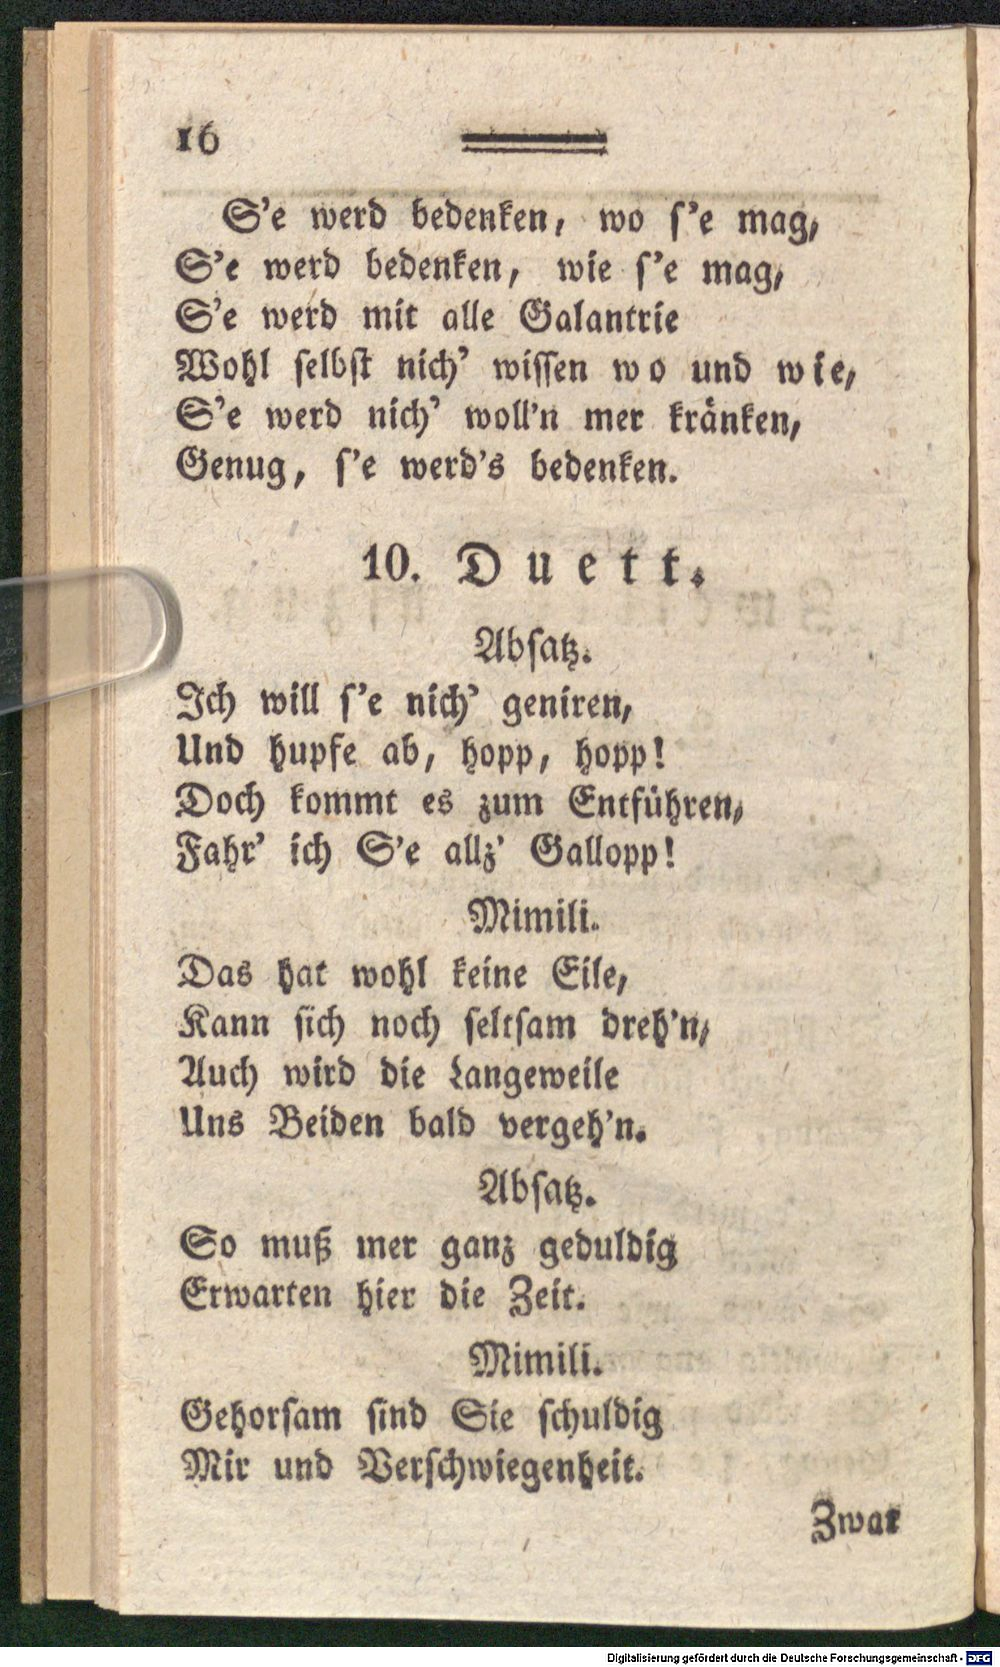 16
S'e werd bedenken, wo s'e mag,
S'e werd bedenken, wie s'e mag,
S'e werd mit alle Galantrie
Wohl selbst nich' wissen wo und wie,
S'e werd nich' woll'n mer kränken,
Genug, s'e werd's bedenken.
10. Duett.
Absatz.
Ich will s'e nich' geniren,
Und hupfe ab, hopp, hopp!
Doch kommt es zum Entführen,
Fahr' ich S'e allz' Gallopp!
Mimili.
Das hat wohl keine Eile,
Kann sich noch seltsam dreh'n,
Auch wird die Langeweile
Uns Beiden bald vergeh'n.
Absatz.
So muß mer ganz geduldig
Erwarten hier die Zeit.
Mimili.
Gehorsam sind Sie schuldig
Mir und Verschwiegenheit.
Zwar
Digitalisierung gefördert durch die Deutsche Forschungsgemeinschaft - DFG